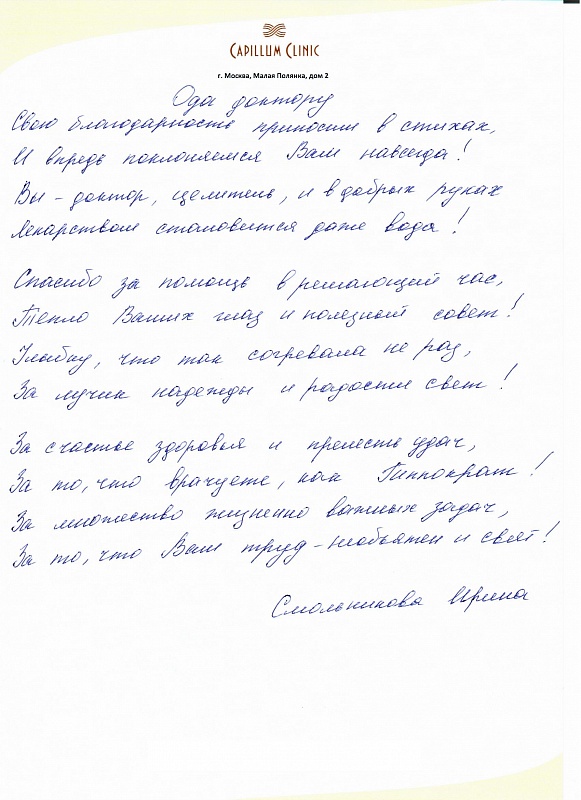 CAPILLUM CLINIC
г. Москва, Малая Полянка, дом 2
Ода доктору
Свою благодарность приносим в стихах,
И впредь поклоняемся Вам навсегда!
Вы - доктор, целитель, и в добрых руках
Лекарством становится даже вода!
Спасибо за помощь в решающий час,
Тепло Ваших глаз и полезный совет!
Улыбку, что так согревала не раз,
За лучик надежды и радости свет!
За счастье здоровья и прелесть удач,
За то, что врачуете, как Гиппократ!
За множество жизненно важных задач,
За то, что Ваш труд - необъятен и свят!
Смольникова Ирина